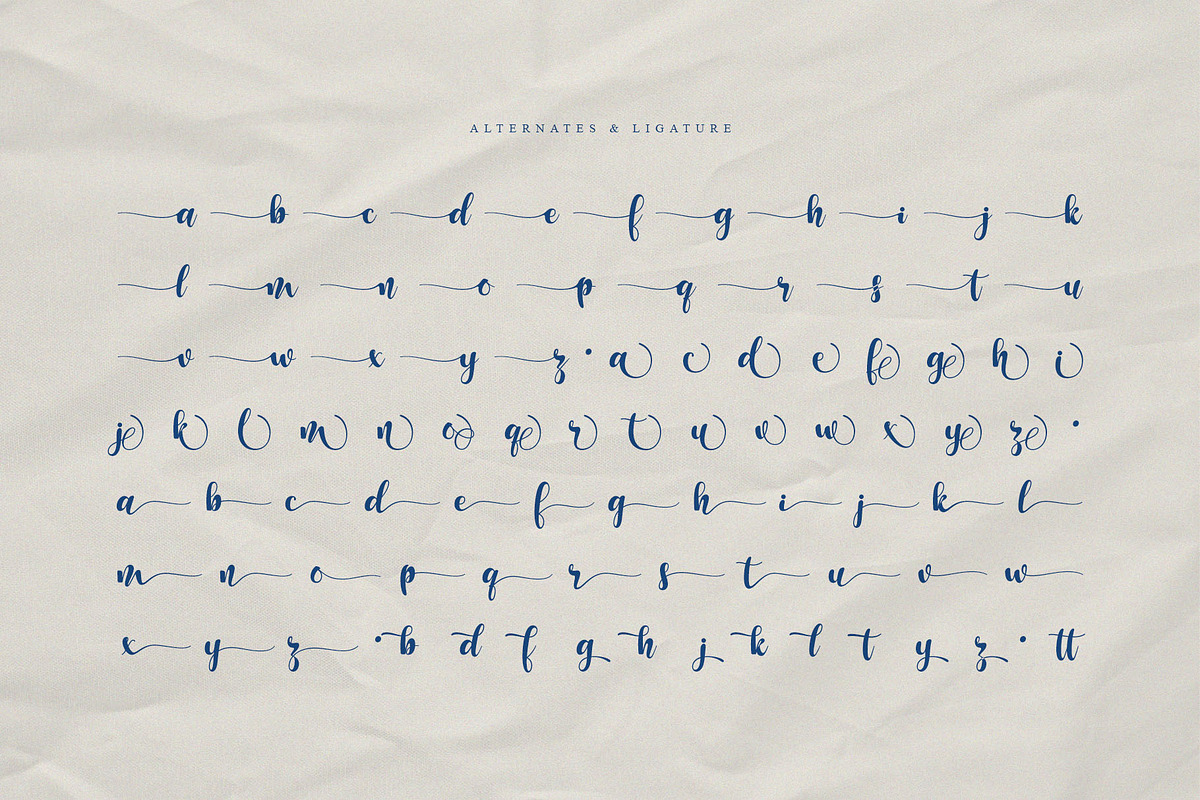 ALTERNATES & LIGATURE
a b c d e f g h i j k
l m n o p q r s t u
v w x y z • a c d e f g h i
j k l m n o q r t u v w x y z •
a b c d e f g h i j k l
m n o p q r s t u v w
x y z • b d f g h j k l t y z • tt